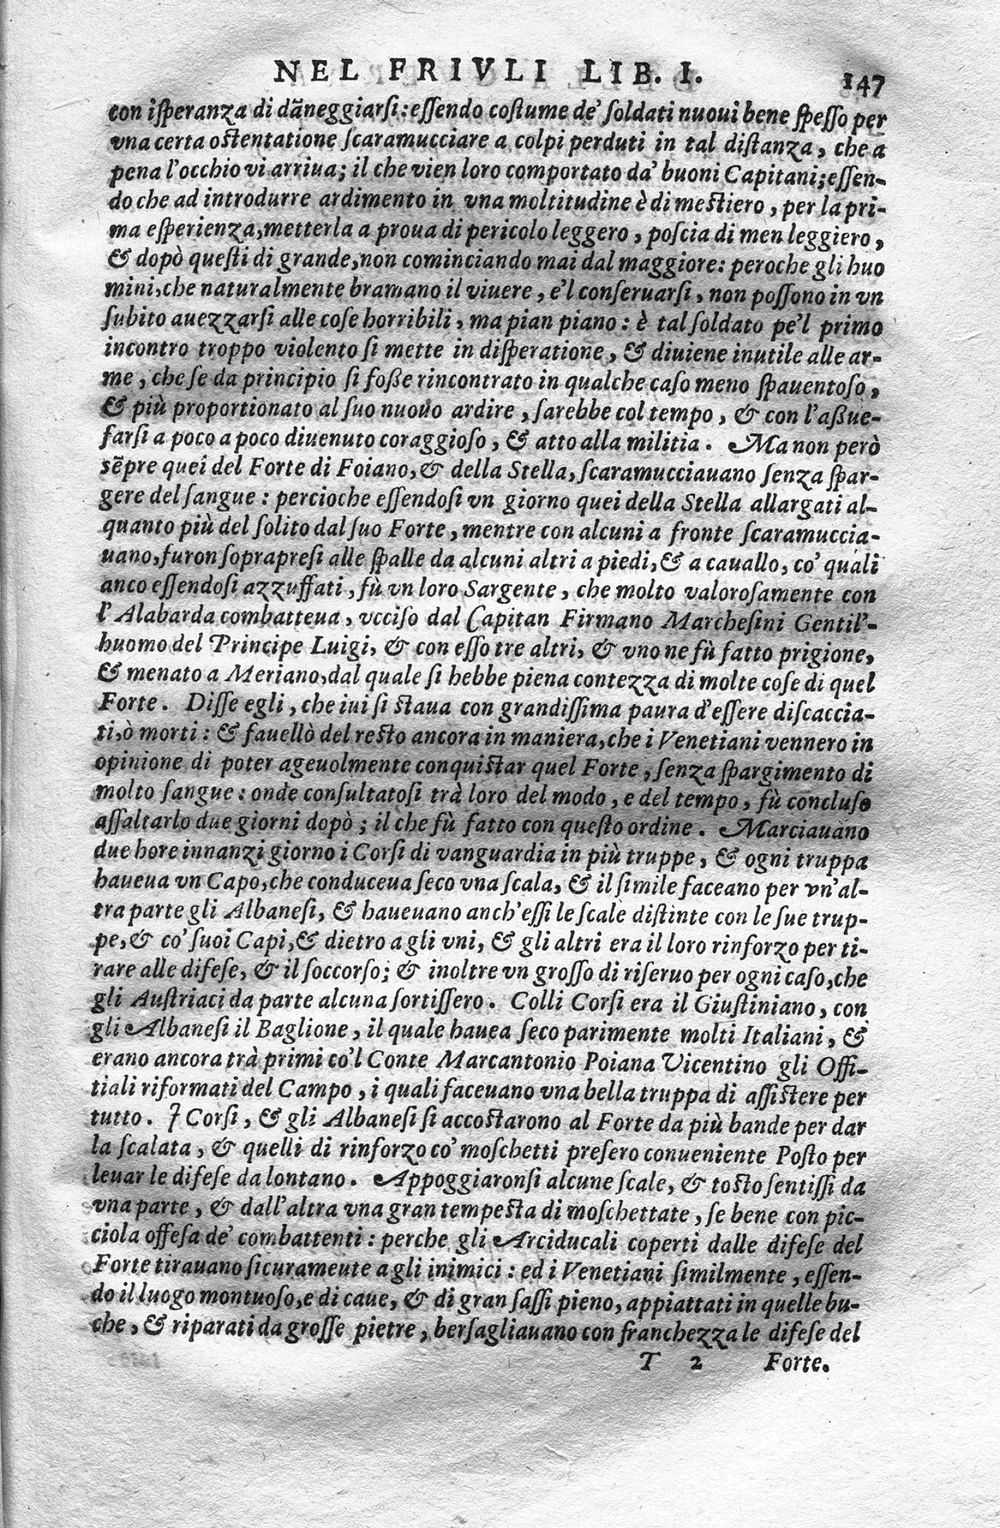 NEL FRIVLI LIB. I. 147
con iſperanza di dãneggiarſi: eſſendo coſtume de' ſoldati nuoui bene ſpeſſo per
vna certa oſtentatione ſcaramucciare a colpi perduti in tal diſtanza, che a
pena l'occhio vi arriua; il che vien loro comportato da' buoni Capitani; eſſen-
do che ad introdurre ardimento in vna moltitudine è di meſtiero, per la pri-
ma eſperienza, metterla a proua di pericolo leggero, poſcia di men leggiero,
& dopò queſti di grande, non cominciando mai dal maggiore: peroche gli huo
mini, che naturalmente bramano il viuere, e'l conſeruarſi, non poſſono in vn
ſubito auezzarſi alle coſe horribili, ma pian piano: è tal ſoldato pe'l primo
incontro troppo violento ſi mette in diſperatione, & diuiene inutile alle ar-
me, che ſe da principio ſi foße rincontrato in qualche caſo meno ſpauentoſo,
& più proportionato al ſuo nuouo ardire, ſarebbe col tempo, & con l'aßue-
farſi a poco a poco diuenuto coraggioſo, & atto alla militia. Ma non però
sẽpre quei del Forte di Foiano, & della Stella, ſcaramucciauano ſenza ſpar-
gere del ſangue: percioche eſſendoſi vn giorno quei della Stella allargati al-
quanto più del ſolito dal ſuo Forte, mentre con alcuni a fronte ſcaramuccia-
uano, furon ſoprapreſi alle ſpalle da alcuni altri a piedi, & a cauallo, co' quali
anco eſſendoſi azzuffati, fù vn loro Sargente, che molto valoroſamente con
l'Alabarda combatteua, vcciſo dal Capitan Firmano Marcheſini Gentil'-
huomo del Principe Luigi, & con eſſo tre altri, & vno ne fù fatto prigione,
& menato a Meriano, dal quale ſi hebbe piena contezza di molte coſe di quel
Forte. Diſſe egli, che iui ſi ſtaua con grandiſſima paura d'eſſere diſcaccia-
ti, ò morti: & fauellò del reſto ancora in maniera, che i Venetiani vennero in
opinione di poter ageuolmente conquiſtar quel Forte, ſenza ſpargimento di
molto ſangue: onde conſultatoſi trà loro del modo, e del tempo, fù concluſo
aſſaltarlo due giorni dopò; il che fù fatto con queſto ordine. Marciauano
due hore innanzi giorno i Corſi di vanguardia in più truppe, & ogni truppa
haueua vn Capo, che conduceua ſeco vna ſcala, & il ſimile faceano per vn'al-
tra parte gli Albaneſi, & haueuano anch'eſſi le ſcale diſtinte con le ſue trup-
pe, & co' ſuoi Capi, & dietro a gli vni, & gli altri era il loro rinforzo per ti-
rare alle difeſe, & il ſoccorſo; & inoltre vn groſſo di riſeruo per ogni caſo, che
gli Auſtriaci da parte alcuna ſortiſſero. Colli Corſi era il Giuſtiniano, con
gli Albaneſi il Baglione, il quale hauea ſeco parimente molti Italiani, &
erano ancora trà primi co'l Conte Marcantonio Poiana Vicentino gli Offi-
tiali riformati del Campo, i quali faceuano vna bella truppa di aſſiſtere per
tutto. I Corſi, & gli Albaneſi ſi accoſtarono al Forte da più bande per dar
la ſcalata, & quelli di rinforzo co' moſchetti preſero conueniente Poſto per
leuar le difeſe da lontano. Appoggiaronſi alcune ſcale, & toſto ſentiſſi da
vna parte, & dall'altra vna gran tempeſta di moſchettate, ſe bene con pic-
ciola offeſa de' combattenti: perche gli Arciducali coperti dalle difeſe del
Forte tirauano ſicuramente a gli inimici: ed i Venetiani ſimilmente, eſſen-
do il luogo montuoſo, e di caue, & di gran ſaſſi pieno, appiattati in quelle bu-
che, & riparati da groſſe pietre, berſagliauano con franchezza le difeſe del
T 2 Forte.